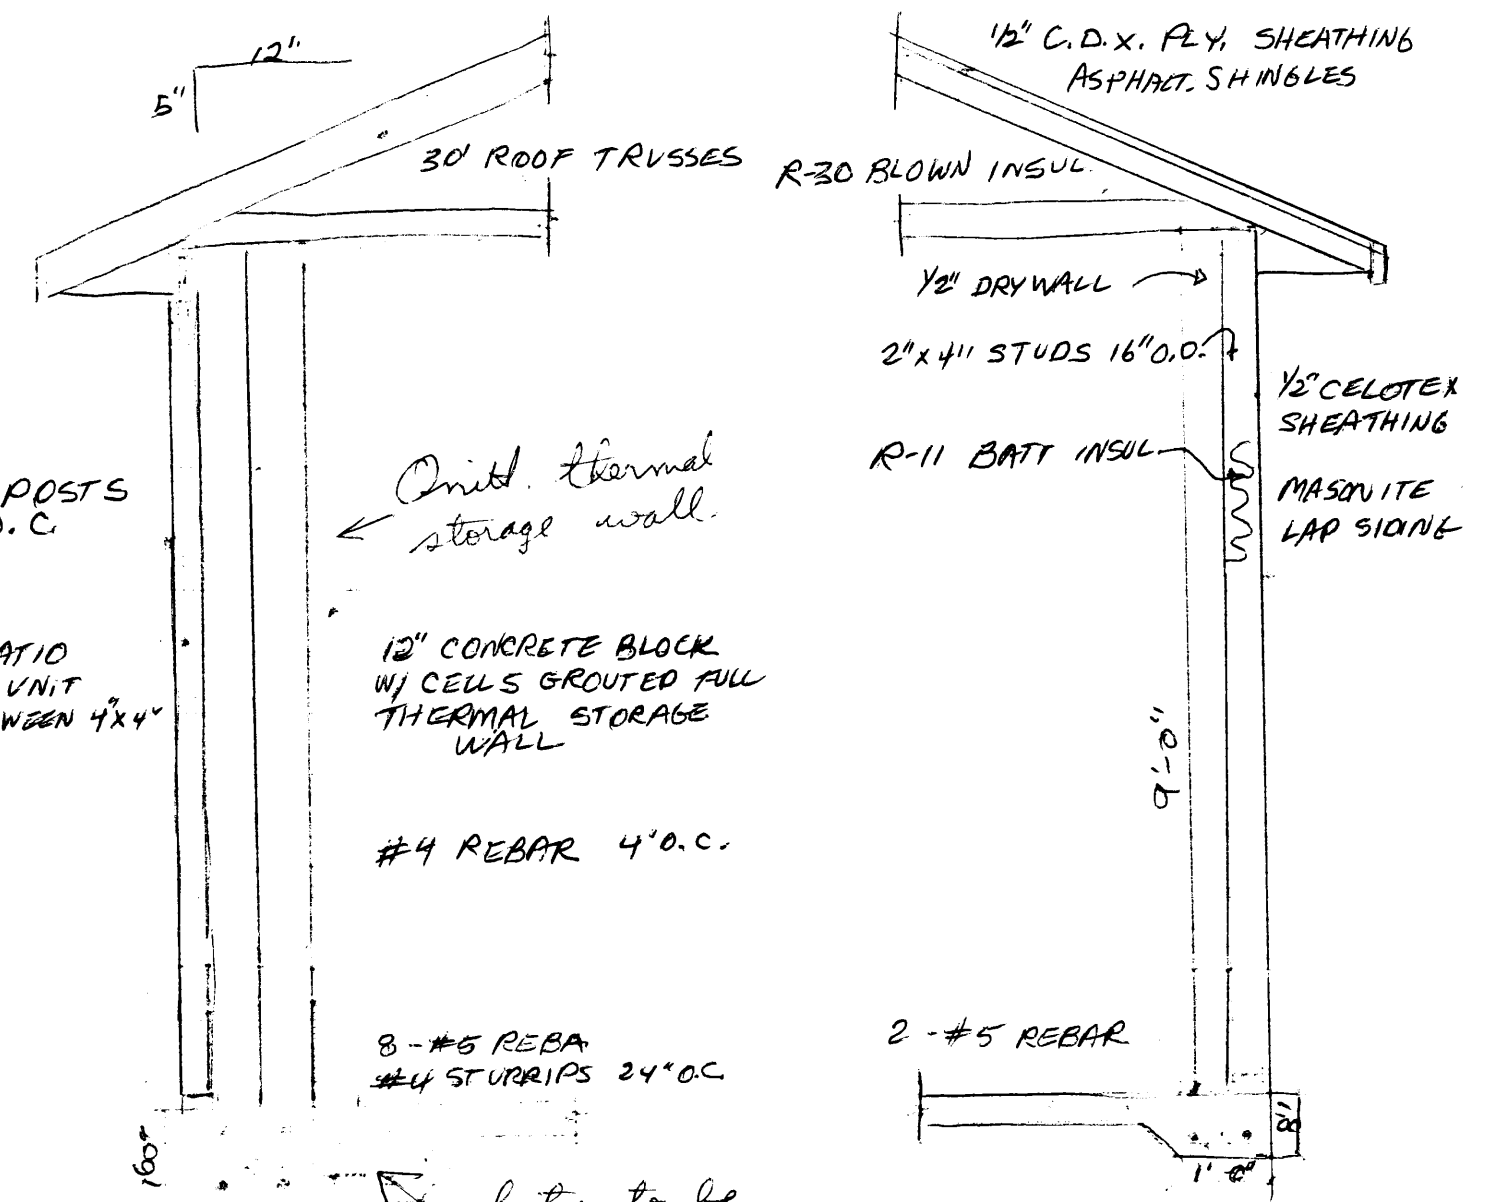 12"
5"
30' ROOF TRUSSES
POSTS
. C
ATIO
UNIT
WEEN 4"X4"
Omitt. thermal
storage wall.
12" CONCRETE BLOCK
W/ CELLS GROUTED FULL
THERMAL STORAGE
WALL
#4 REBAR 4'O.C.
8-#5 REBA
#4 STURRIPS 24"O.C
to be
1/2" C.D.X. PLY. SHEATHING
ASPHALT. SHINGLES
R-30 BLOWN INSUL.
1/2" DRYWALL
2"X4" STUDS 16"O.O.
1/2" CELOTEX
SHEATHING
R-11 BATT INSUL
MASONITE
LAP SIDING
9'-0"
2-#5 REBAR
8"